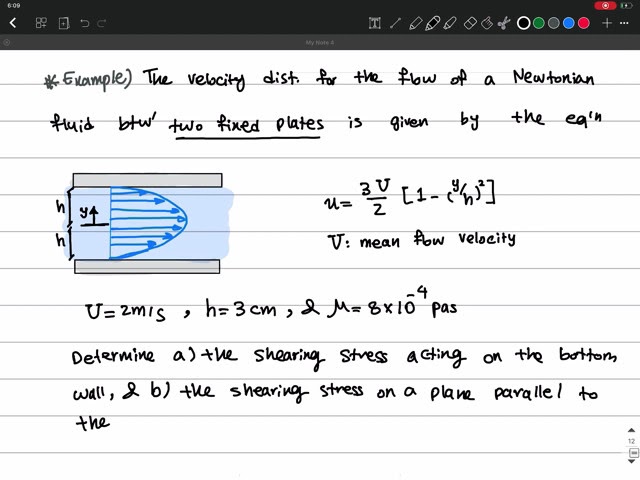 6:09
My Note 4
* Example) The velocity dist. for the flow of a Newtonian
fluid btw' two fixed plates is given by the eq'n
h
y
h
u = 3V/2 [1 - (y/h)²]
V: mean flow velocity
V = 2m/s , h = 3 cm , & μ = 8×10⁻⁴ pas
Determine a) the shearing stress acting on the bottom
wall, & b) the shearing stress on a plane parallel to
the
12